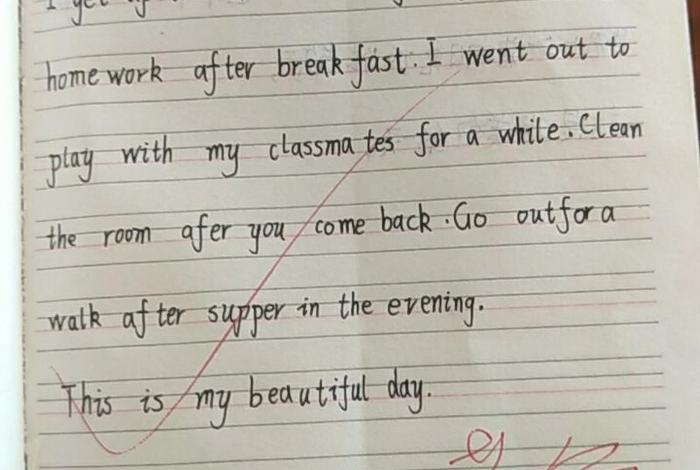 I get
homework after breakfast. I went out to
play with my classmates for a while. Clean
the room afer you come back. Go out for a
walk after supper in the evening.
This is my beautiful day.